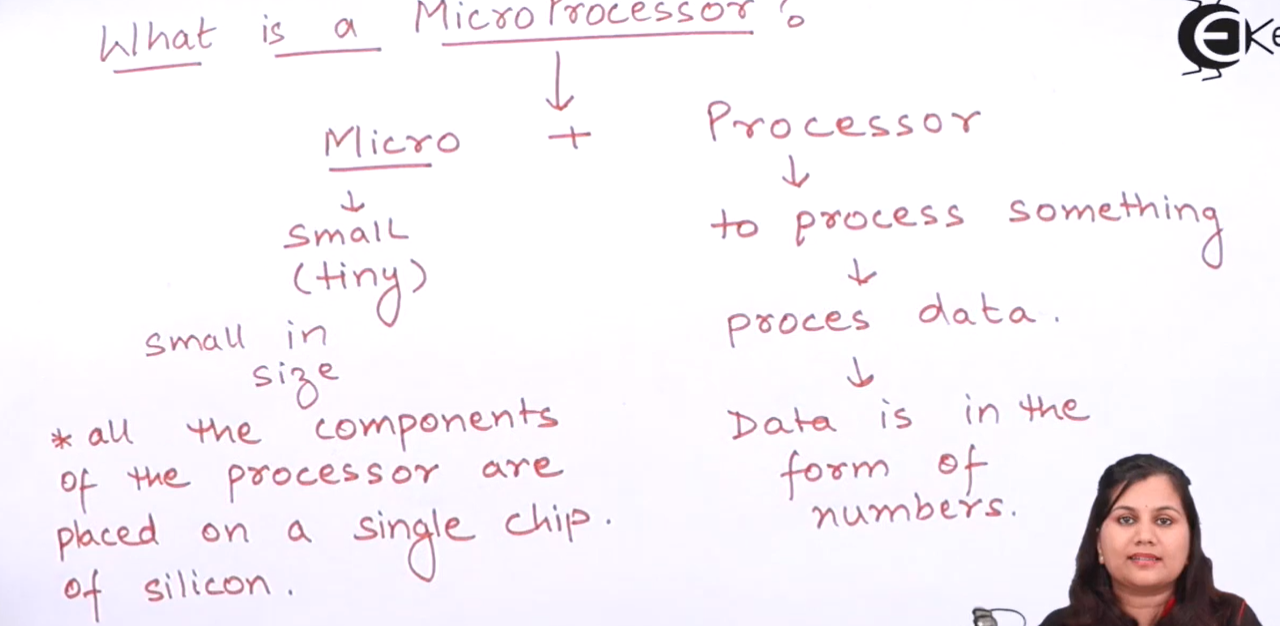 What is a MicroProcessor ?
Ke
Micro + Processor
small
(tiny)
small in
size
* all the components
of the processor are
placed on a single chip.
of silicon.
to process something
proces data.
Data is in the
form of
numbers.